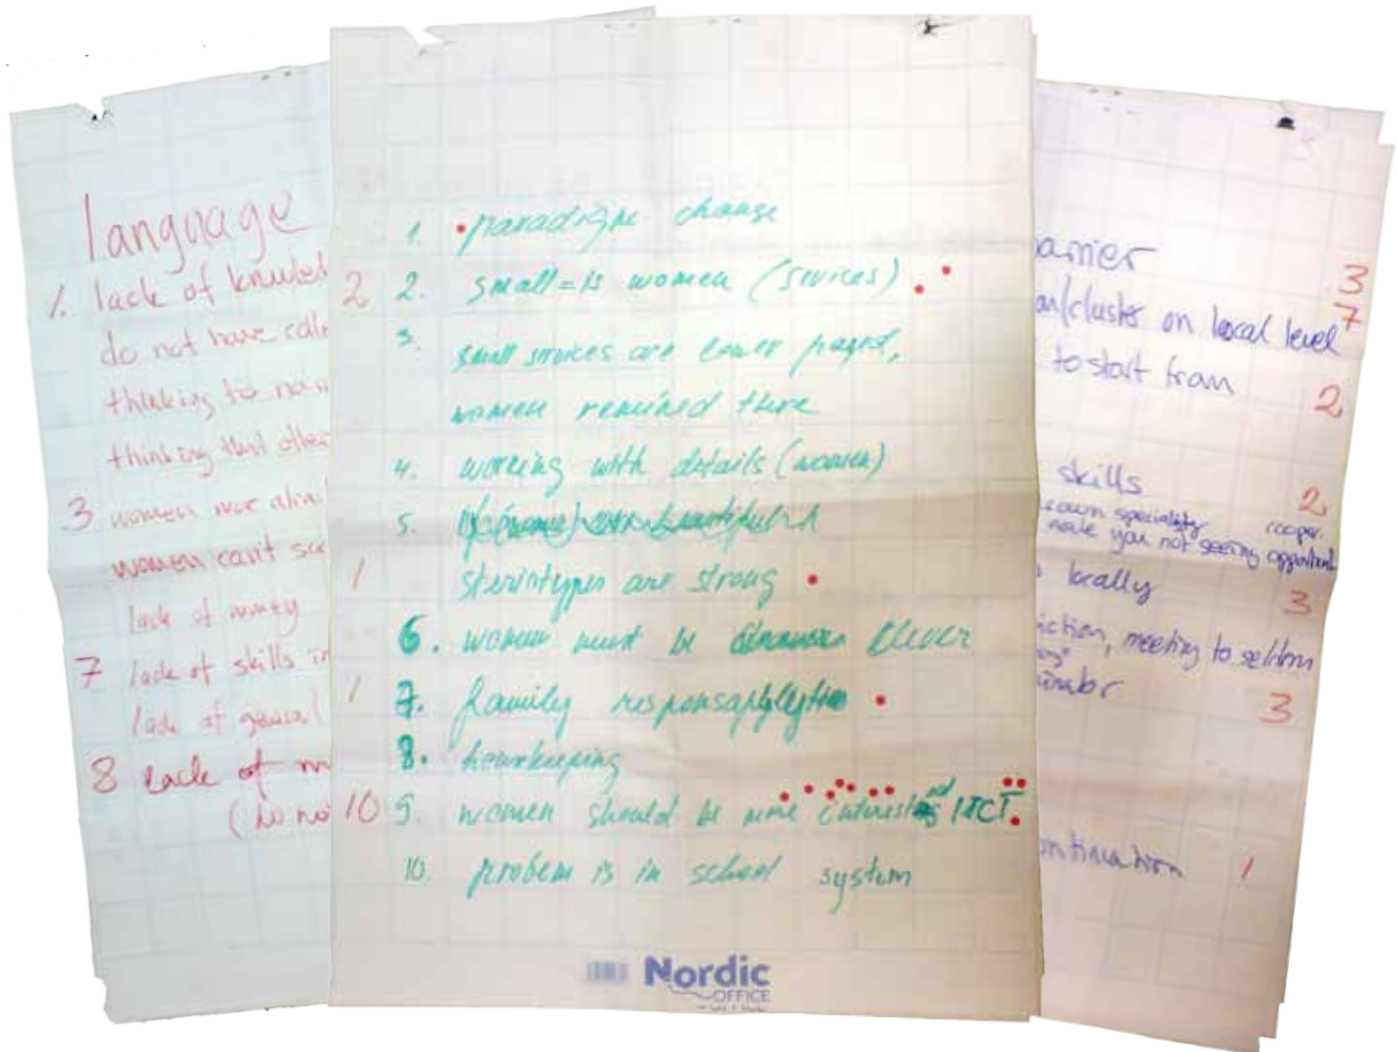 language
1. lack of knowled
do not have colle
thinking to
thinking that other
3 women
women can't
lack of
7 lack of skills in
lack of general
8 Lack of
(do no
1. paradigne change
2 2. small=is women (sevices)
3. small services are lower payed,
women remined there
4. working with details (women)
5.
1 sterintypes are strong
6. women must be clever
1 7. family
8. hourkeeping
10 9. women should be more ITCT.
10. probem is in school system
Nordic
OFFICE
arrier 3
an/cluster on local level 7
to start from 2
skills 2
own speciality cooper.
make you not seeing opportunit
locally 3
iction, meeting to seldom
inator 3
ontinuation 1